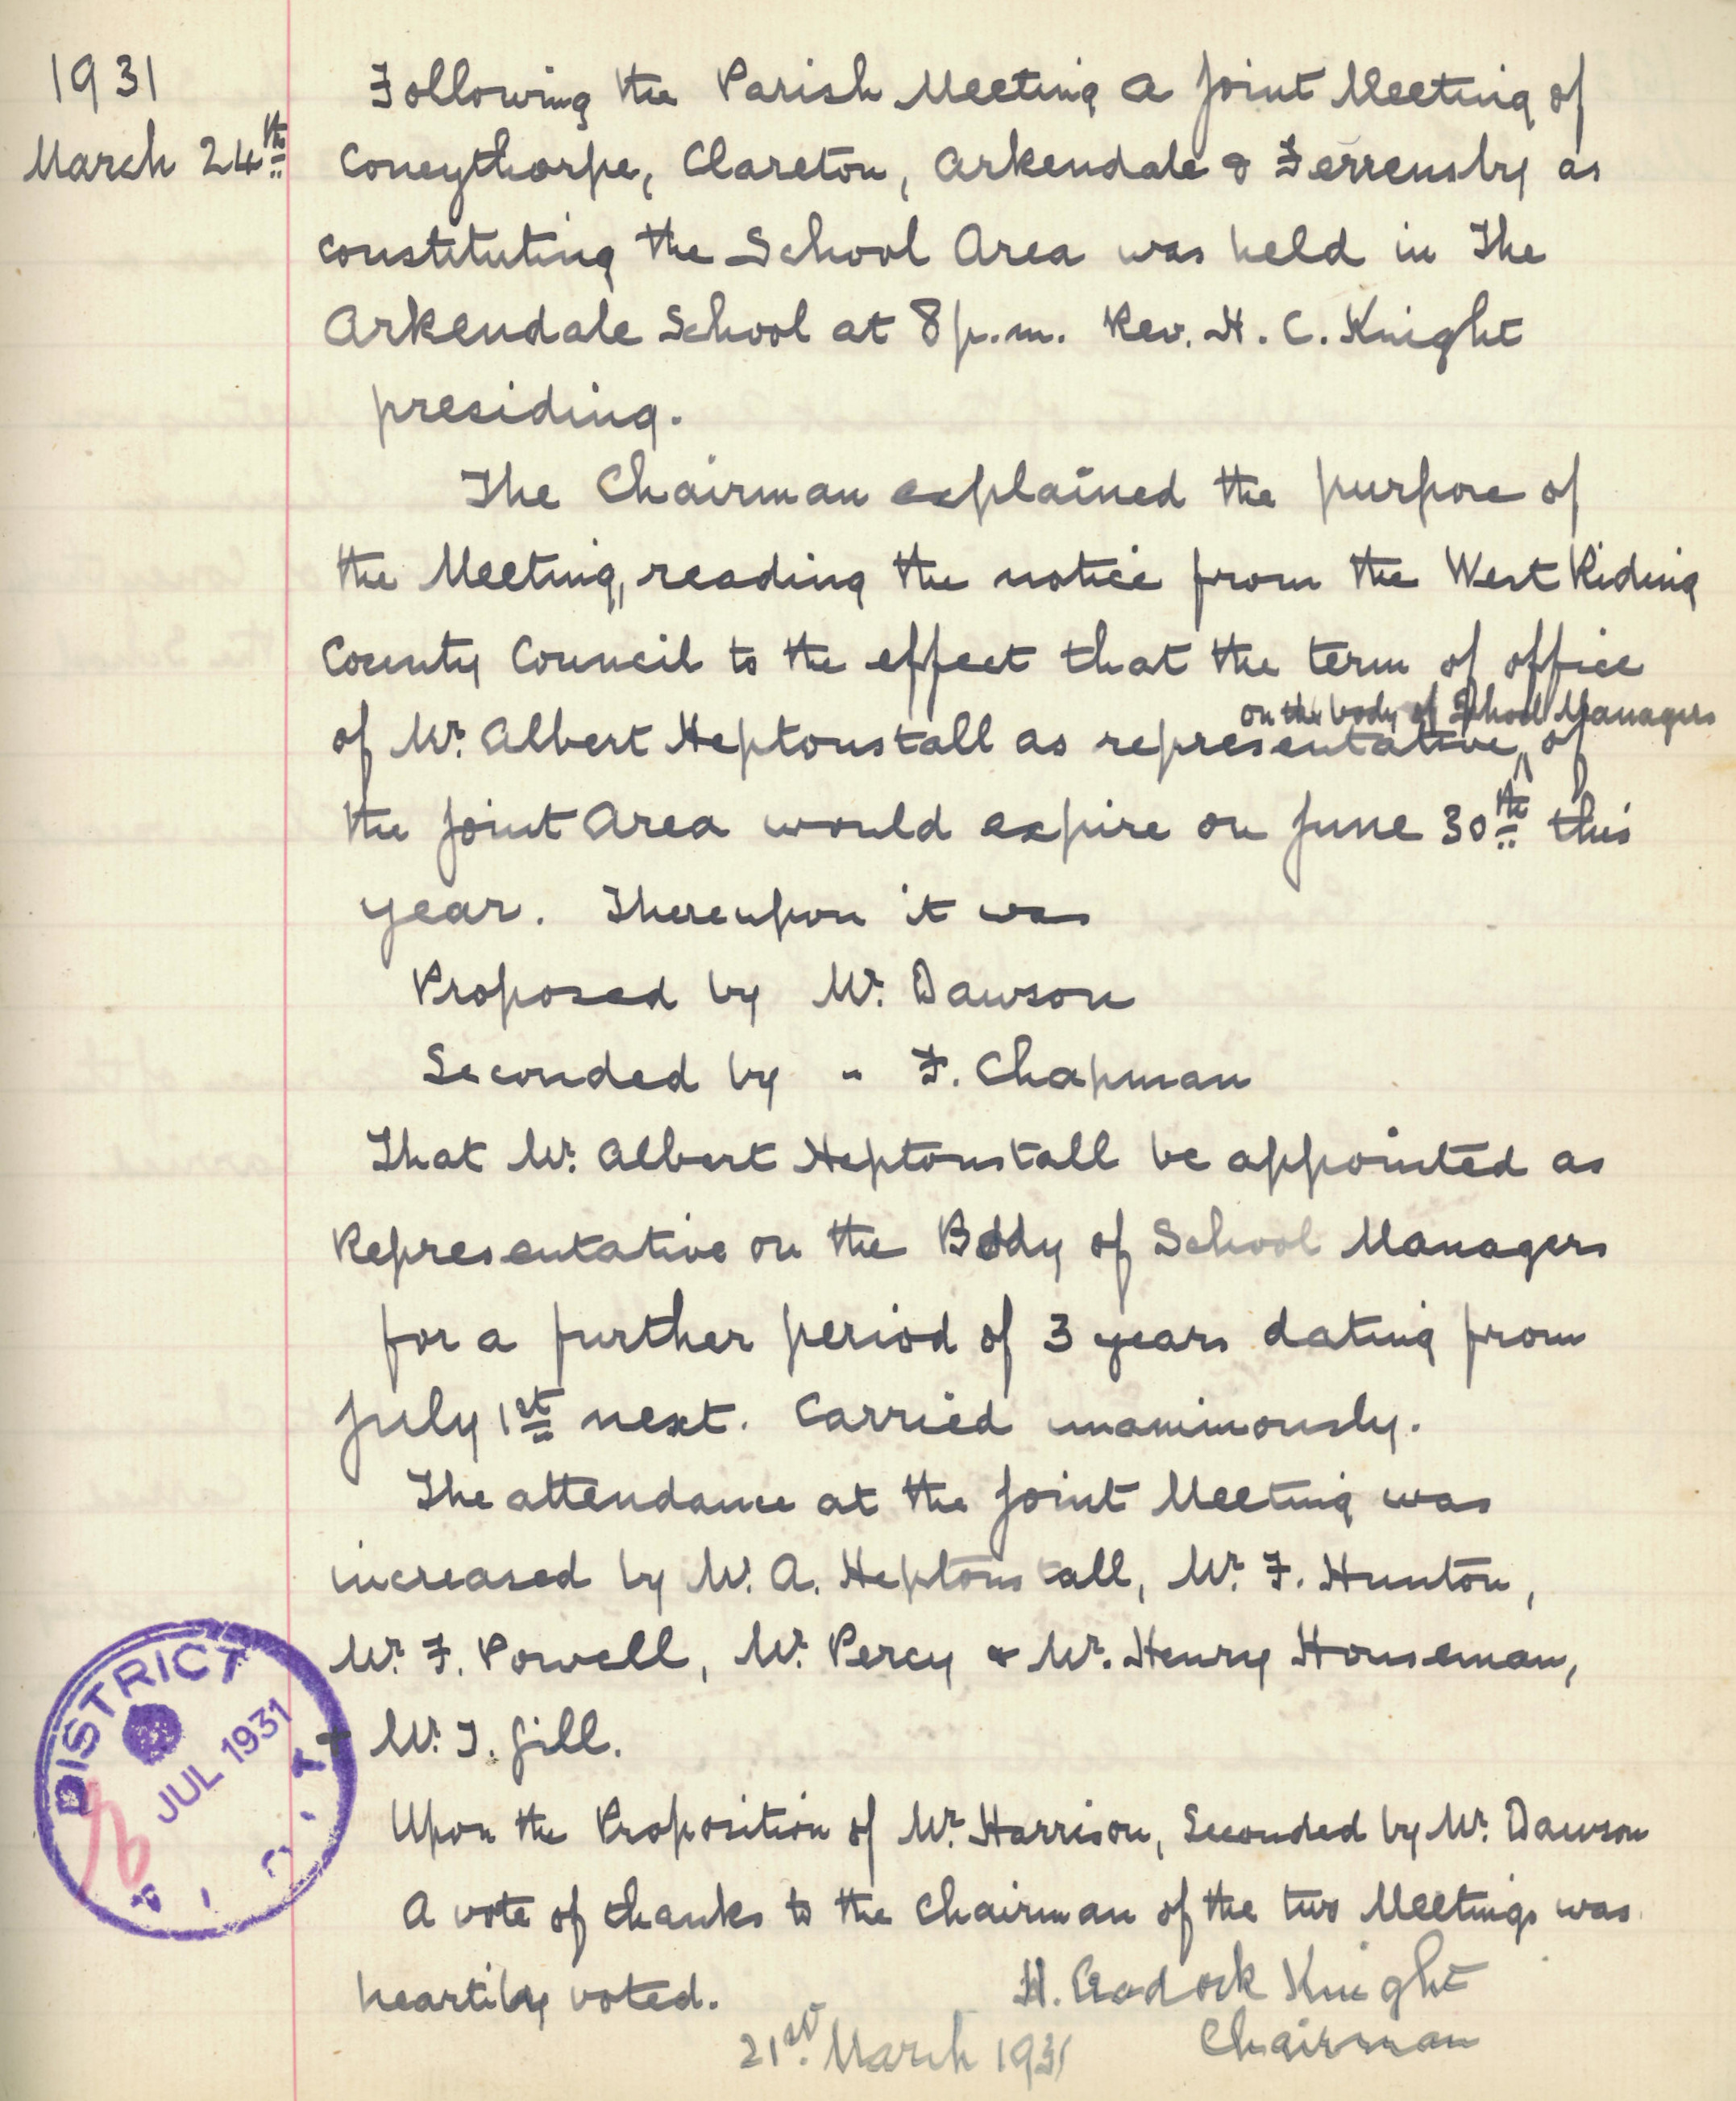 1931
March 24th
Following the Parish Meeting a Joint Meeting of
Coneythorpe, Clareton, Arkendale & Ferrensby as
constituting the School Area was held in The
Arkendale School at 8 p.m. Rev. H. C. Knight
presiding.
The Chairman explained the purpose of
the Meeting, reading the notice from the West Riding
County Council to the effect that the term of office
on the body of School Managers
of Mr. Albert Heptonstall as representative of
the Joint Area would expire on June 30th this
year. Thereupon it was
Proposed by Mr. Dawson
Seconded by " F. Chapman
That Mr. Albert Heptonstall be appointed as
Representative on the Body of School Managers
for a further period of 3 years dating from
July 1st next. Carried unanimously.
The attendance at the Joint Meeting was
increased by Mr. A. Heptonstall, Mr. F. Hunton,
Mr. F. Powell, Mr. Percy & Mr. Henry Houseman,
+ Mr. T. Gill.
Upon the Proposition of Mr. Harrison, Seconded by Mr. Dawson
A vote of thanks to the Chairman of the two Meetings was
heartily voted.
H. Knight
Chairman
21st March 1931
DISTRICT
JUL 1931